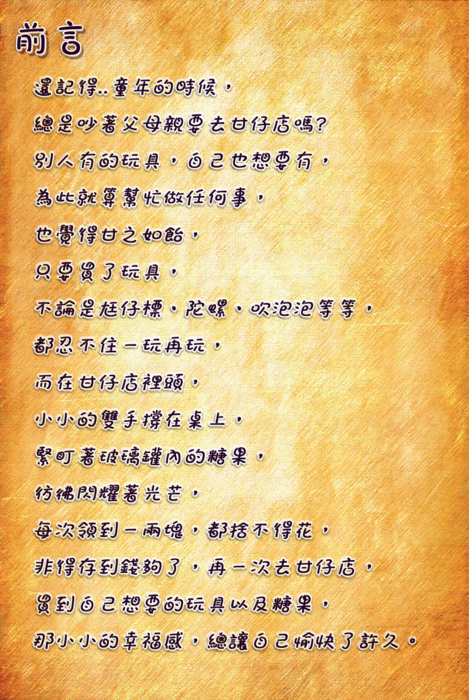 前言
還記得..童年的時候，
總是吵著父母親要去甘仔店嗎?
別人有的玩具，自己也想要有，
為此就算幫忙做任何事，
也覺得甘之如飴，
只要買了玩具，
不論是尪仔標、陀螺、吹泡泡等等，
都忍不住一玩再玩，
而在甘仔店裡頭，
小小的雙手撐在桌上，
緊盯著玻璃罐內的糖果，
彷彿閃耀著光芒，
每次領到一兩塊，都捨不得花，
非得存到錢夠了，再一次去甘仔店，
買到自己想要的玩具以及糖果，
那小小的幸福感，總讓自己愉快了許久。